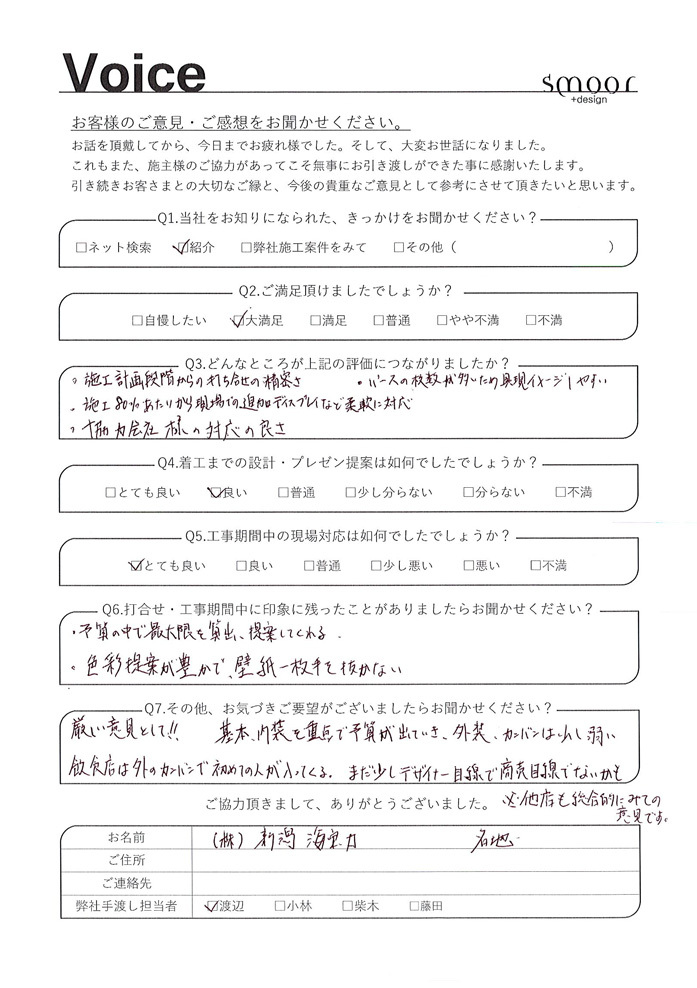 Voice
smoor
+design
お客様のご意見・ご感想をお聞かせください。
お話を頂戴してから、今日までお疲れ様でした。そして、大変お世話になりました。
これもまた、施主様のご協力があってこそ無事にお引き渡しができた事に感謝いたします。
引き続きお客さまとの大切なご縁と、今後の貴重なご意見として参考にさせて頂きたいと思います。
Q1.当社をお知りになられた、きっかけをお聞かせください？
□ネット検索 ☑紹介 □弊社施工案件をみて □その他（ ）
Q2.ご満足頂けましたでしょうか？
□自慢したい ☑大満足 □満足 □普通 □やや不満 □不満
Q3.どんなところが上記の評価につながりましたか？
・施工計画段階からの打ち合せの精密さ ・パースの枚数が多いため具現イメージしやすい
・施工80%あたりから現場での追加ディスプレイなど柔軟に対応
・協力会社様の対応の良さ
Q4.着工までの設計・プレゼン提案は如何でしたでしょうか？
□とても良い ☑良い □普通 □少し分らない □分らない □不満
Q5.工事期間中の現場対応は如何でしたでしょうか？
☑とても良い □良い □普通 □少し悪い □悪い □不満
Q6.打合せ・工事期間中に印象に残ったことがありましたらお聞かせください？
・予算の中で最大限を算出、提案してくれる.
・色彩提案が豊かで、壁紙一枚手を抜かない
Q7.その他、お気づきご要望がございましたらお聞かせください？
厳しい意見として!! 基本、内装を重点で予算が出ていき、外装、カンバンは少し弱い
飲食店は外のカンバンで初めての人が入ってくる。まだ少しデザイナー目線で商売目線でないかも
ご協力頂きまして、ありがとうございました。
※他店も総合的にみての
意見です。
お名前 (株) 新潟海
ご住所
ご連絡先
弊社手渡し担当者 ☑渡辺 □小林 □柴木 □藤田